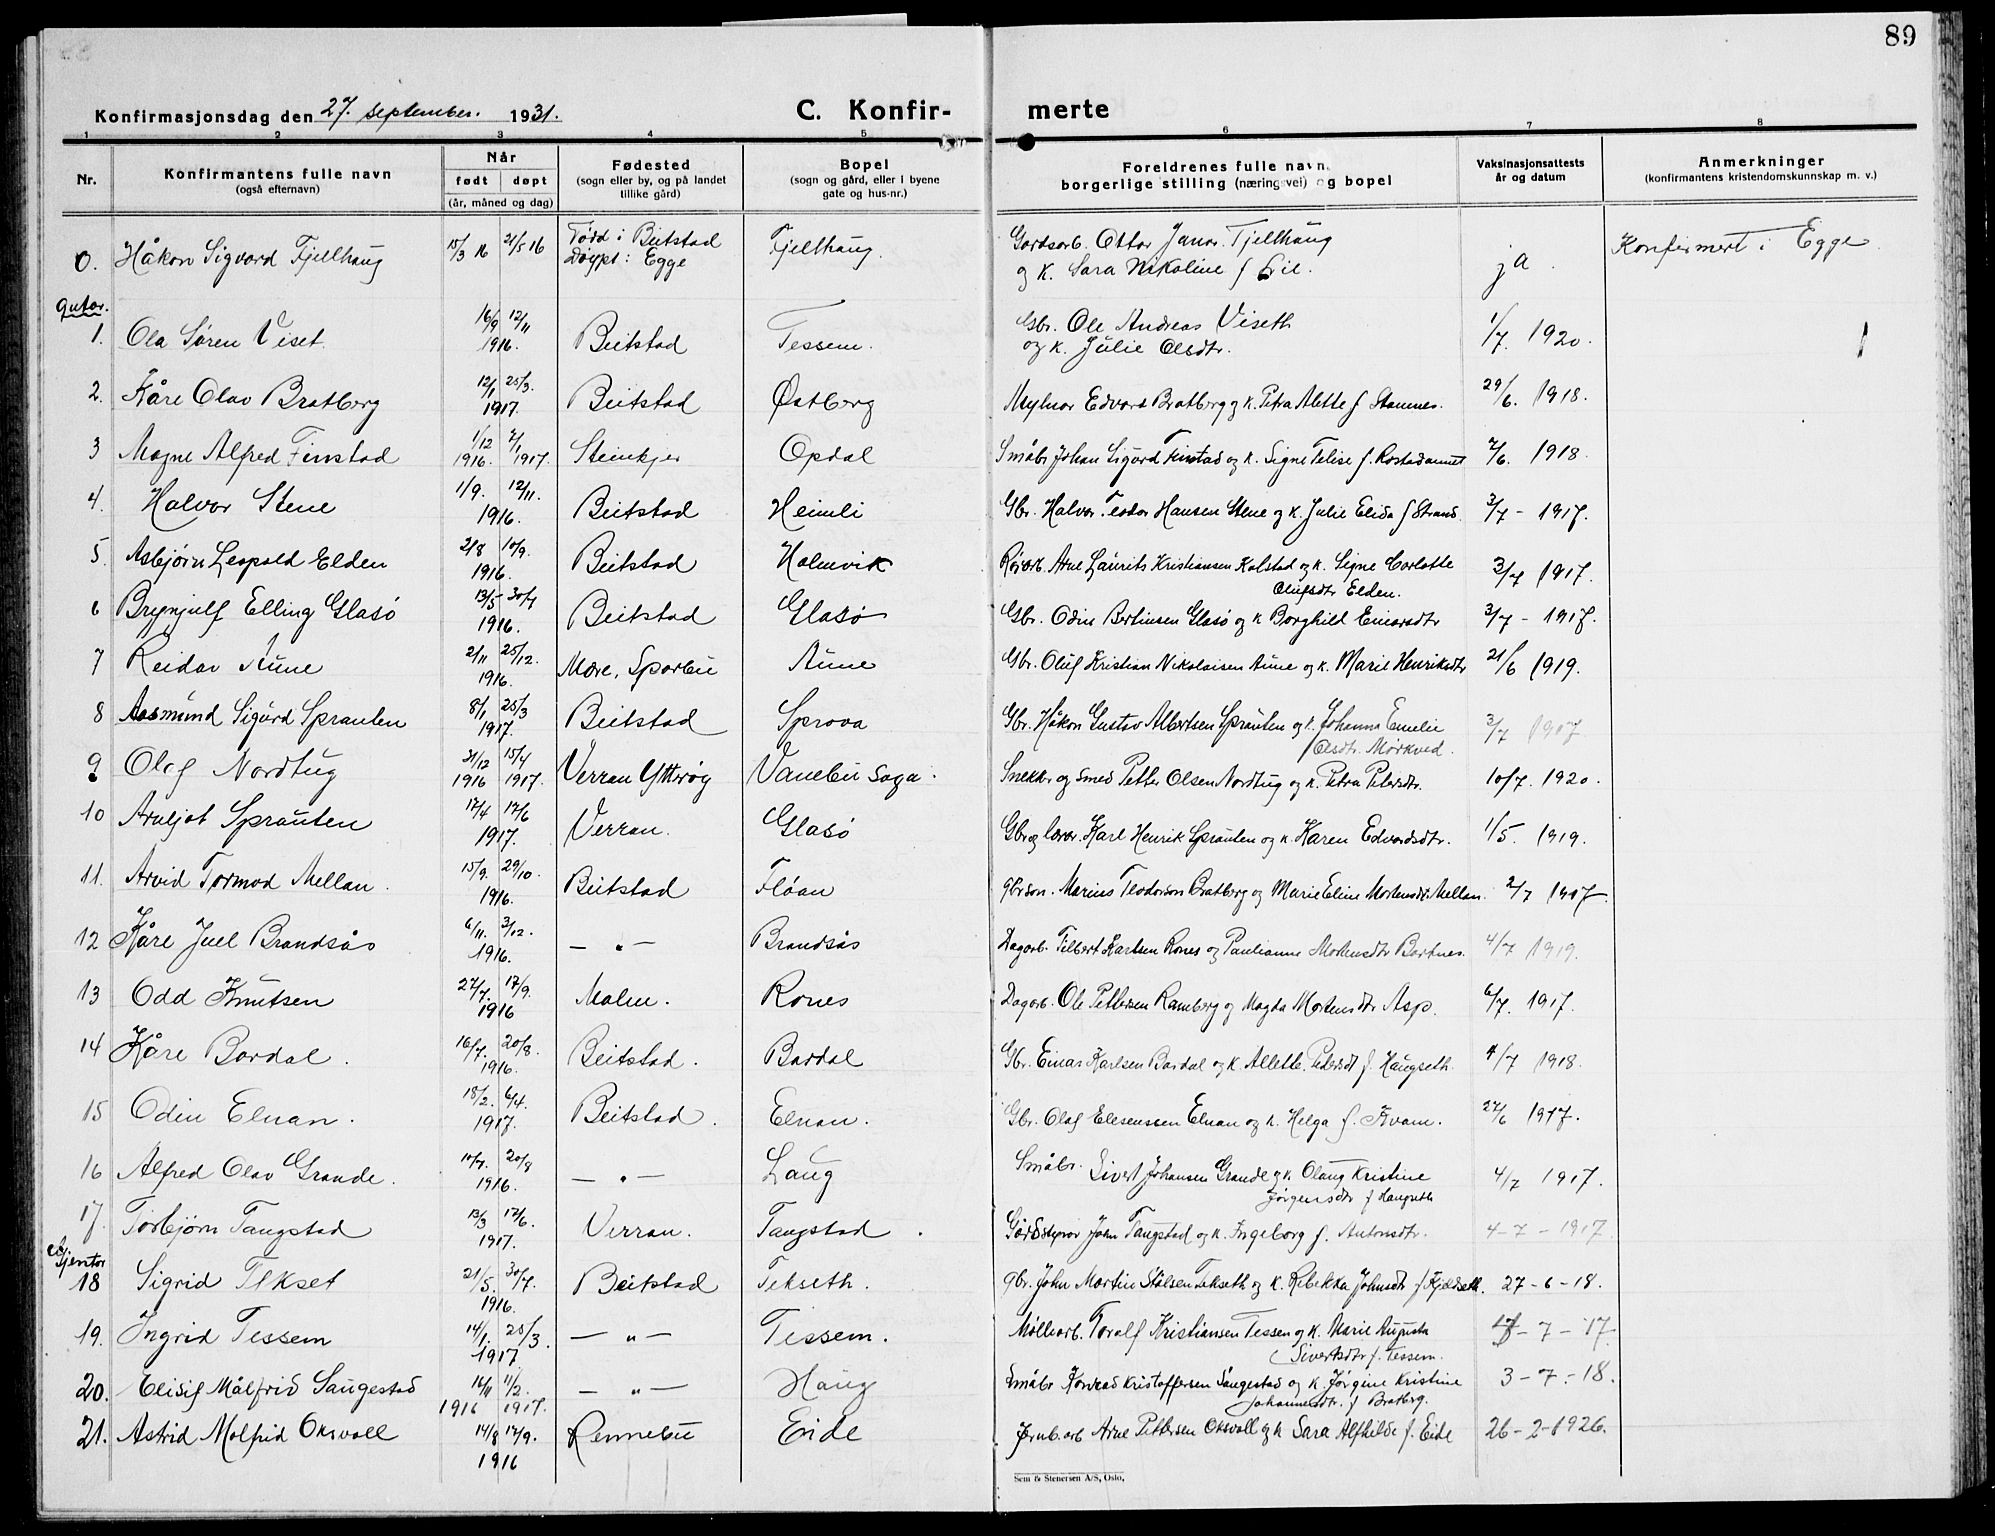 89
Konfirmasjonsdag den 27. september. 1931. C. Konfir- merte
1 2 3 4 5 6 7 8
Nr. Konfirmantens fulle navn (også efternavn) Når født døpt (år, måned og dag) Fødested (sogn eller by, og på landet tillike gård) Bopel (sogn og gård, eller i byene gate og hus-nr.) Foreldrenes fulle navn, borgerlige stilling (næringsvei) og bopel Vaksinasjonsattests år og datum Anmerkninger (konfirmantens kristendomskunnskap m. v.)
0. Håkon Sigvard Fjellhaug 15/3 16 21/5 16 Född i Beitstad Döypt i Egge Fjellhaug. Gardsarb. Ottar Janar. Fjellhaug og K. Sara Nikoline f Lie. ja. Konfirmert i Egge.
Gutar.
1. Ola Søren Viset 16/9 12/11 1916. Beitstad Tessem. Gbr. Ole Andreas Viseth og K. Julie Olsdtr. 1/7. 1920.
2. Kåre Olav Bratberg 12/1 25/3. 1917. Beitstad Østberg Mylnar Edvard Bratberg og K. Petra Alette f Stamnes. 29/6. 1918.
3 Magne Alfred Finstad 1/12 1916. 7/1 1917. Steinkjer Opdal Småbr Johan Sigurd Finstad og K. Signe f. 7/6. 1918.
4. Halvor Stene 1/9. 12/11. 1916. Beitstad Heimli Gbr. Halvor Teodor Hansen Stene og K. Julie Elida f Strand. 3/7 - 1917.
5. Asbjørn Leopold Elden 2/8 10/9. 1916. Beitstad Holmvik Arne Laurits Kristiansen Kolstad og K. Signe Carlotte Olufsdtr Elden. 3/7 1917.
6 Brynjulf Elling Glasö 13/5 30/7 1916. Beitstad Glasö Gbr. Odin Bertinsen Glasö og K Borghild Einarsdtr 3/7 - 1917.
7 Reidar Aune 2/11 25/12. 1916. Mære, Sparbu Aune Gbr. Oluf Kristian Nikolaisen Aune og K. Marie Henriksdtr 21/6 1919.
8 Aasmund Sigurd Sprauten 8/1 25/3 1917. Beitstad Sprova Gbr. Håkon Gustav Albertsen Sprauten og K. Johanna Emelie Olsdtr. Mørkved. 3/7 1917
9 Olaf Nordtug 31/12 1916 15/4 1917. Verran Ytterøy Vanebu Saga. Snekker og smed Petter Olsen Nordtug og K. Petra Petersdtr. 10/7. 1920.
10 Arnljot Sprauten 17/4 17/6 1917. Verran. Glasö Gbr og lærer. Karl Henrik Sprauten og K. Karen Edvardsdtr. 1/5. 1919.
11. Arvid Tormod Mellan. 15/9. 29/10. 1916. Beitstad Flöan gbr son. Marius Teodorson Bratberg og Marie Eline Mortensdtr. Mellan. 2/7 1917.
12 Kåre Juel Brandsås 6/11. 3/12. 1916. — " — Brandsås Dagarb. Tilbert Karlsen Rones og Paulianne Mortensdtr Bartnes. 4/7 1919.
13 Odd Knutsen 27/7. 17/9. 1916 Malm. Rones Dagarb. Ole Pettersen Ramberg og Magda Mortensdtr Asp. 6/7. 1917.
14 Kåre Bardal. 16/7. 20/8. 1916. Beitstad. Bardal Gbr. Einar Karlsen Bardal og K. Allette Pedersdt f. Haugseth. 4/7 1918.
15 Odin Elnan. 18/2. 6/4. 1917. Beitstad. Elnan. Gbr. Olaf Elesenssen Elnan og K. Helga f. Kvam. 27/6 1917.
16 Alfred Olav Grande. 10/7. 20/8 1916. — " — Laug Småbr. Sivert Johansen Grande og K. Olaug Kristine Jörgensdtr f Haugseth 4/7 1917.
17. Torbjørn Tangstad 13/3 17/6. 1917. Verran. Tangstad. John Tangstad og K. Ingeborg f. Antonsdtr. 4 - 7 - 1917.
Gjentor
18 Sigrid Tekset 21/5. 30/7. 1916. Beitstad Tekseth. gbr. John Martin Stålsen Tekseth og K. Rebekka Johnsdtr f Kjeldseth. 27 - 6 - 18.
19. Ingrid Tessem 14/1. 25/3. 1917 — " — Tessem. Møllearb. Toralf Kristiansen Tessem og K. Marie Augusta Sivertsdtr f. Tessem. - 7 - 17
20. Elisif Målfrid Saugestad 16/11 1916 11/2. 1917. — " — Haug Småbr Konrad Kristoffersen Saugestad og K Jörgine Kristine Johannesdtr. f Bratberg. 3 - 7 - 18.
21. Astrid Molfrid Oksvoll 14/8 17/9. 1916 Rennebu Eide Jernb. arb Arne Pettersen Oksvoll og K Sara Alfhilde f. Eide 26 - 2 - 1926.
Sem & Stenersen A/S, Oslo.